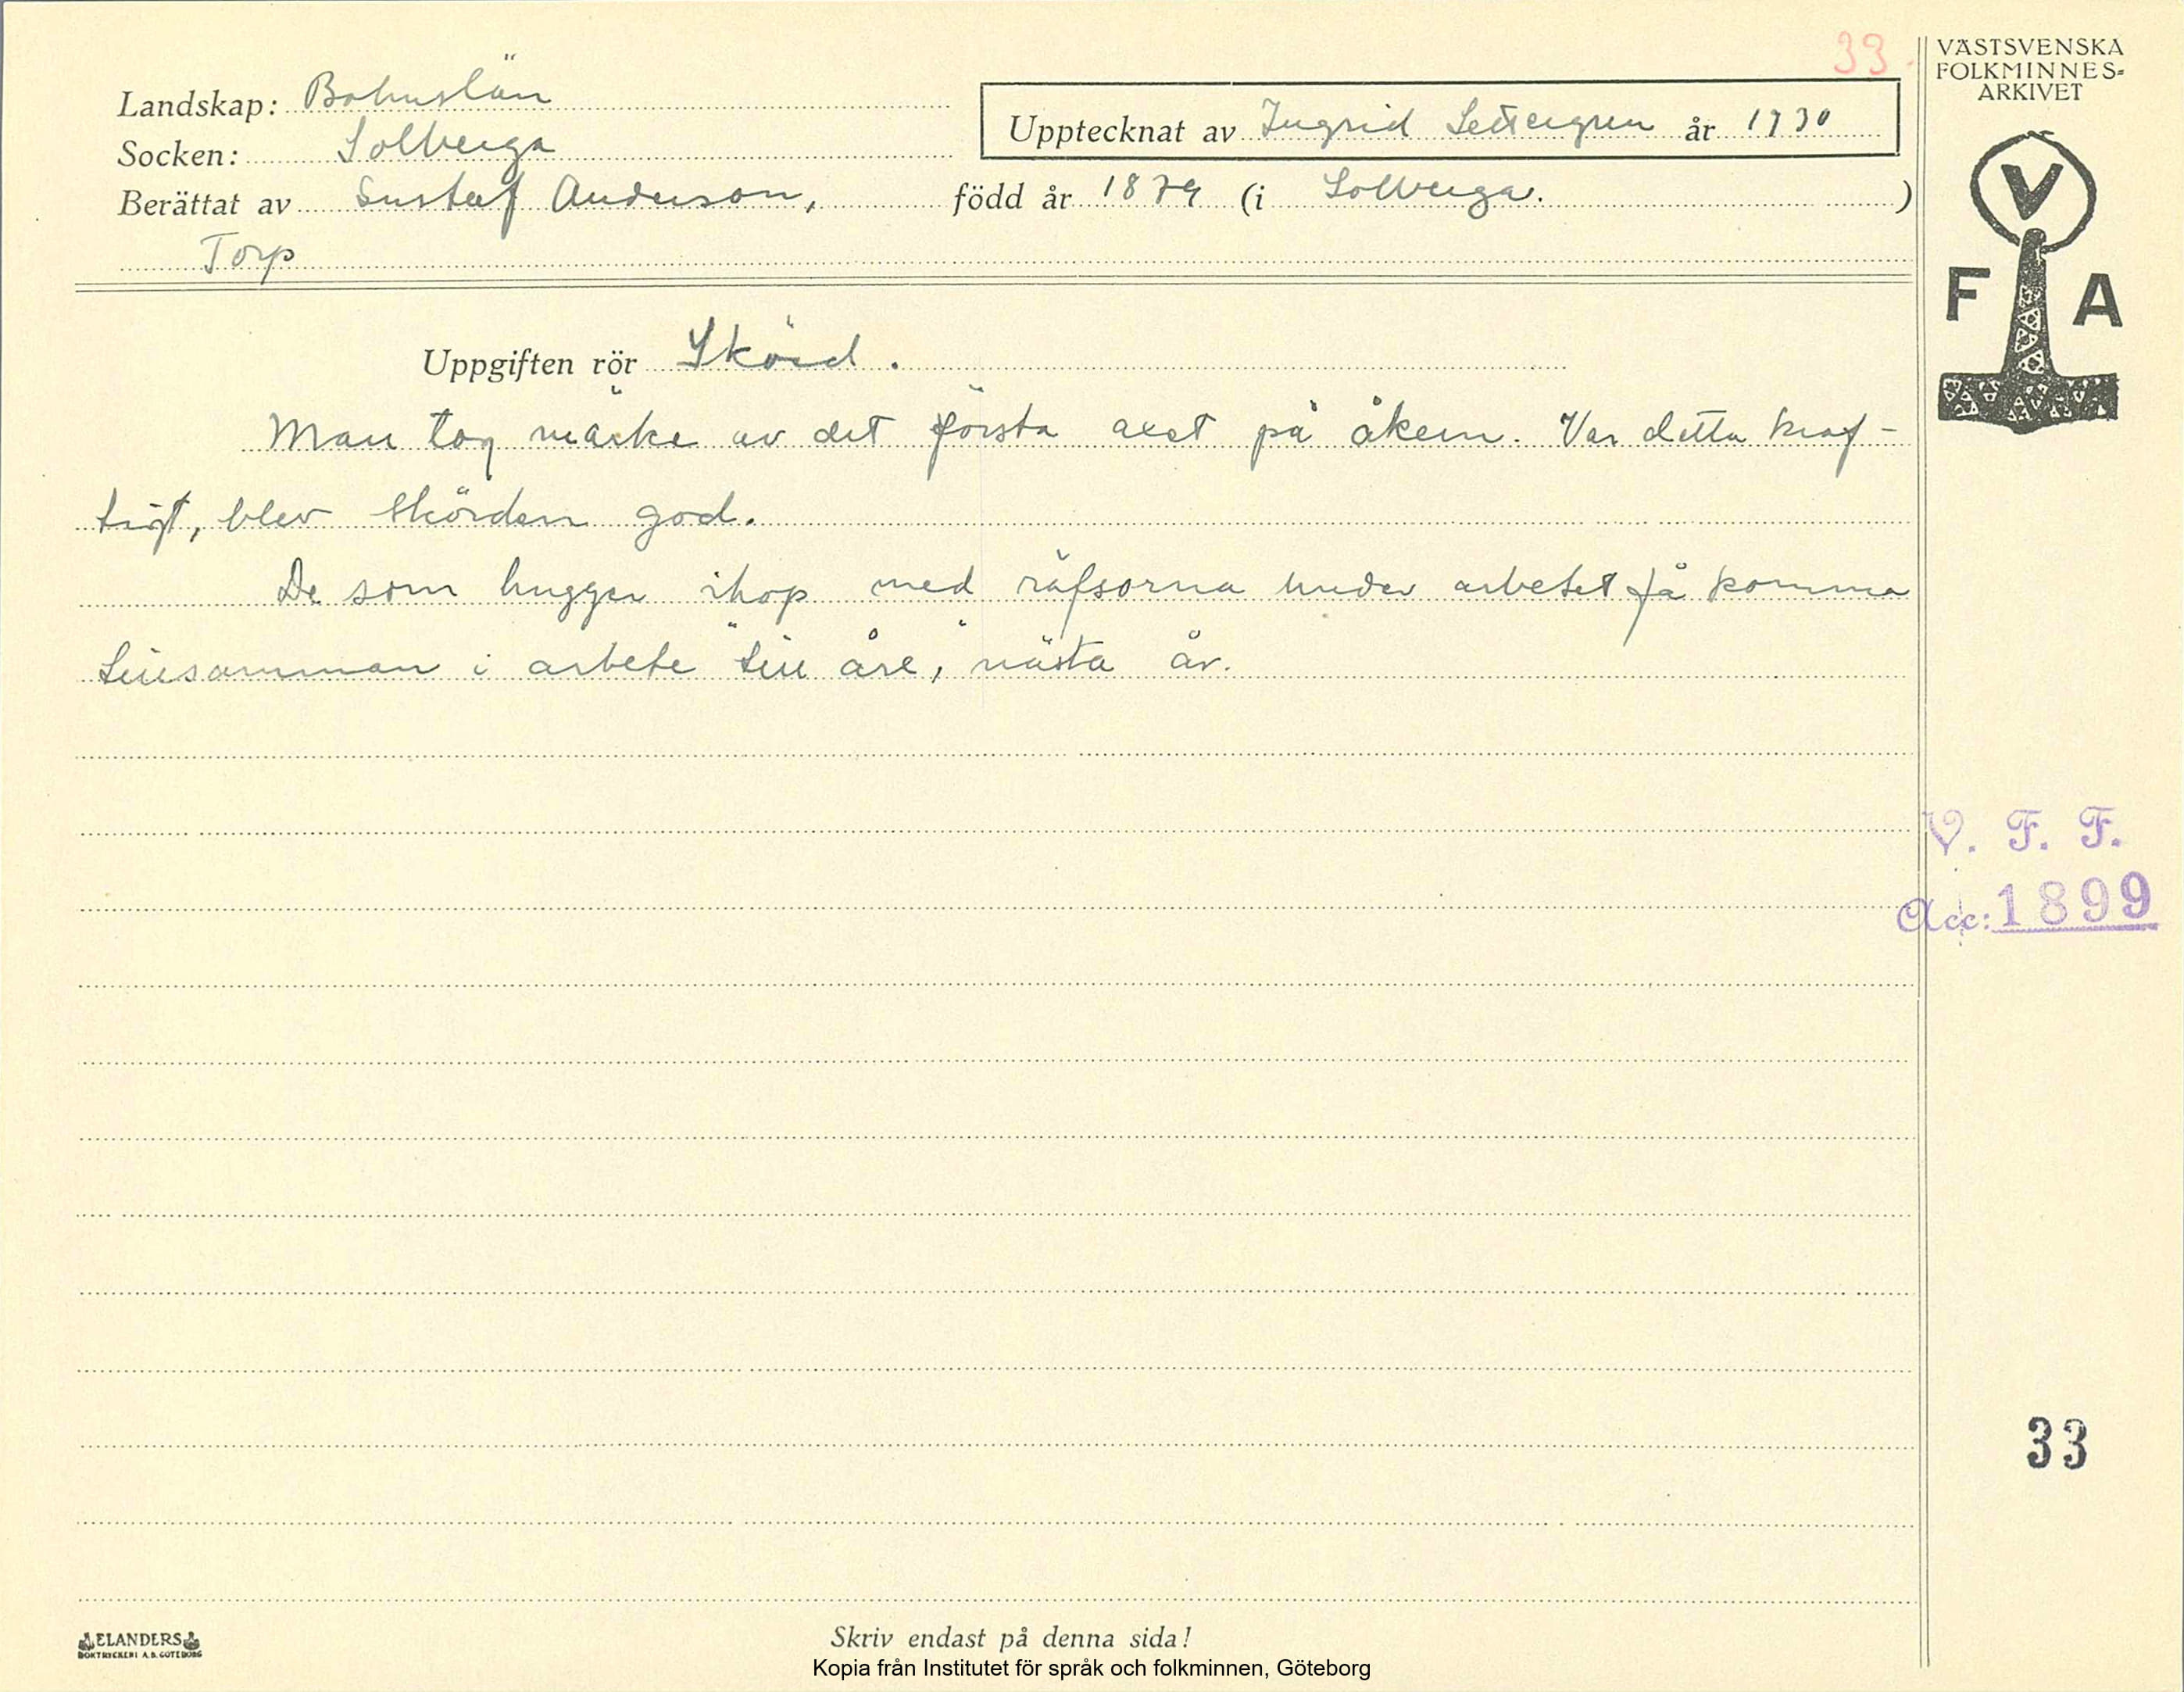 33.
VÄSTSVENSKA
FOLKMINNES-
ARKIVET
Landskap: Bohuslän
Upptecknat av Ingrid Settergren år 1930
Socken: Solberga
Berättat av Gustaf Anderson, född år 1879 (i Solberga. )
Torp
V
F A
Uppgiften rör Skörd.
Man tog märke av det första axet på åkern. Var detta kraf-
tigt, blev skörden god.
De som hugger ihop med räfsorna under arbetet få komma
tillsamman i arbete "till åre," nästa år.
V. F. F.
Acc: 1899
33
ELANDERS
BOKTRYCKERI A.B. GÖTEBORG
Skriv endast på denna sida!
Kopia från Institutet för språk och folkminnen, Göteborg